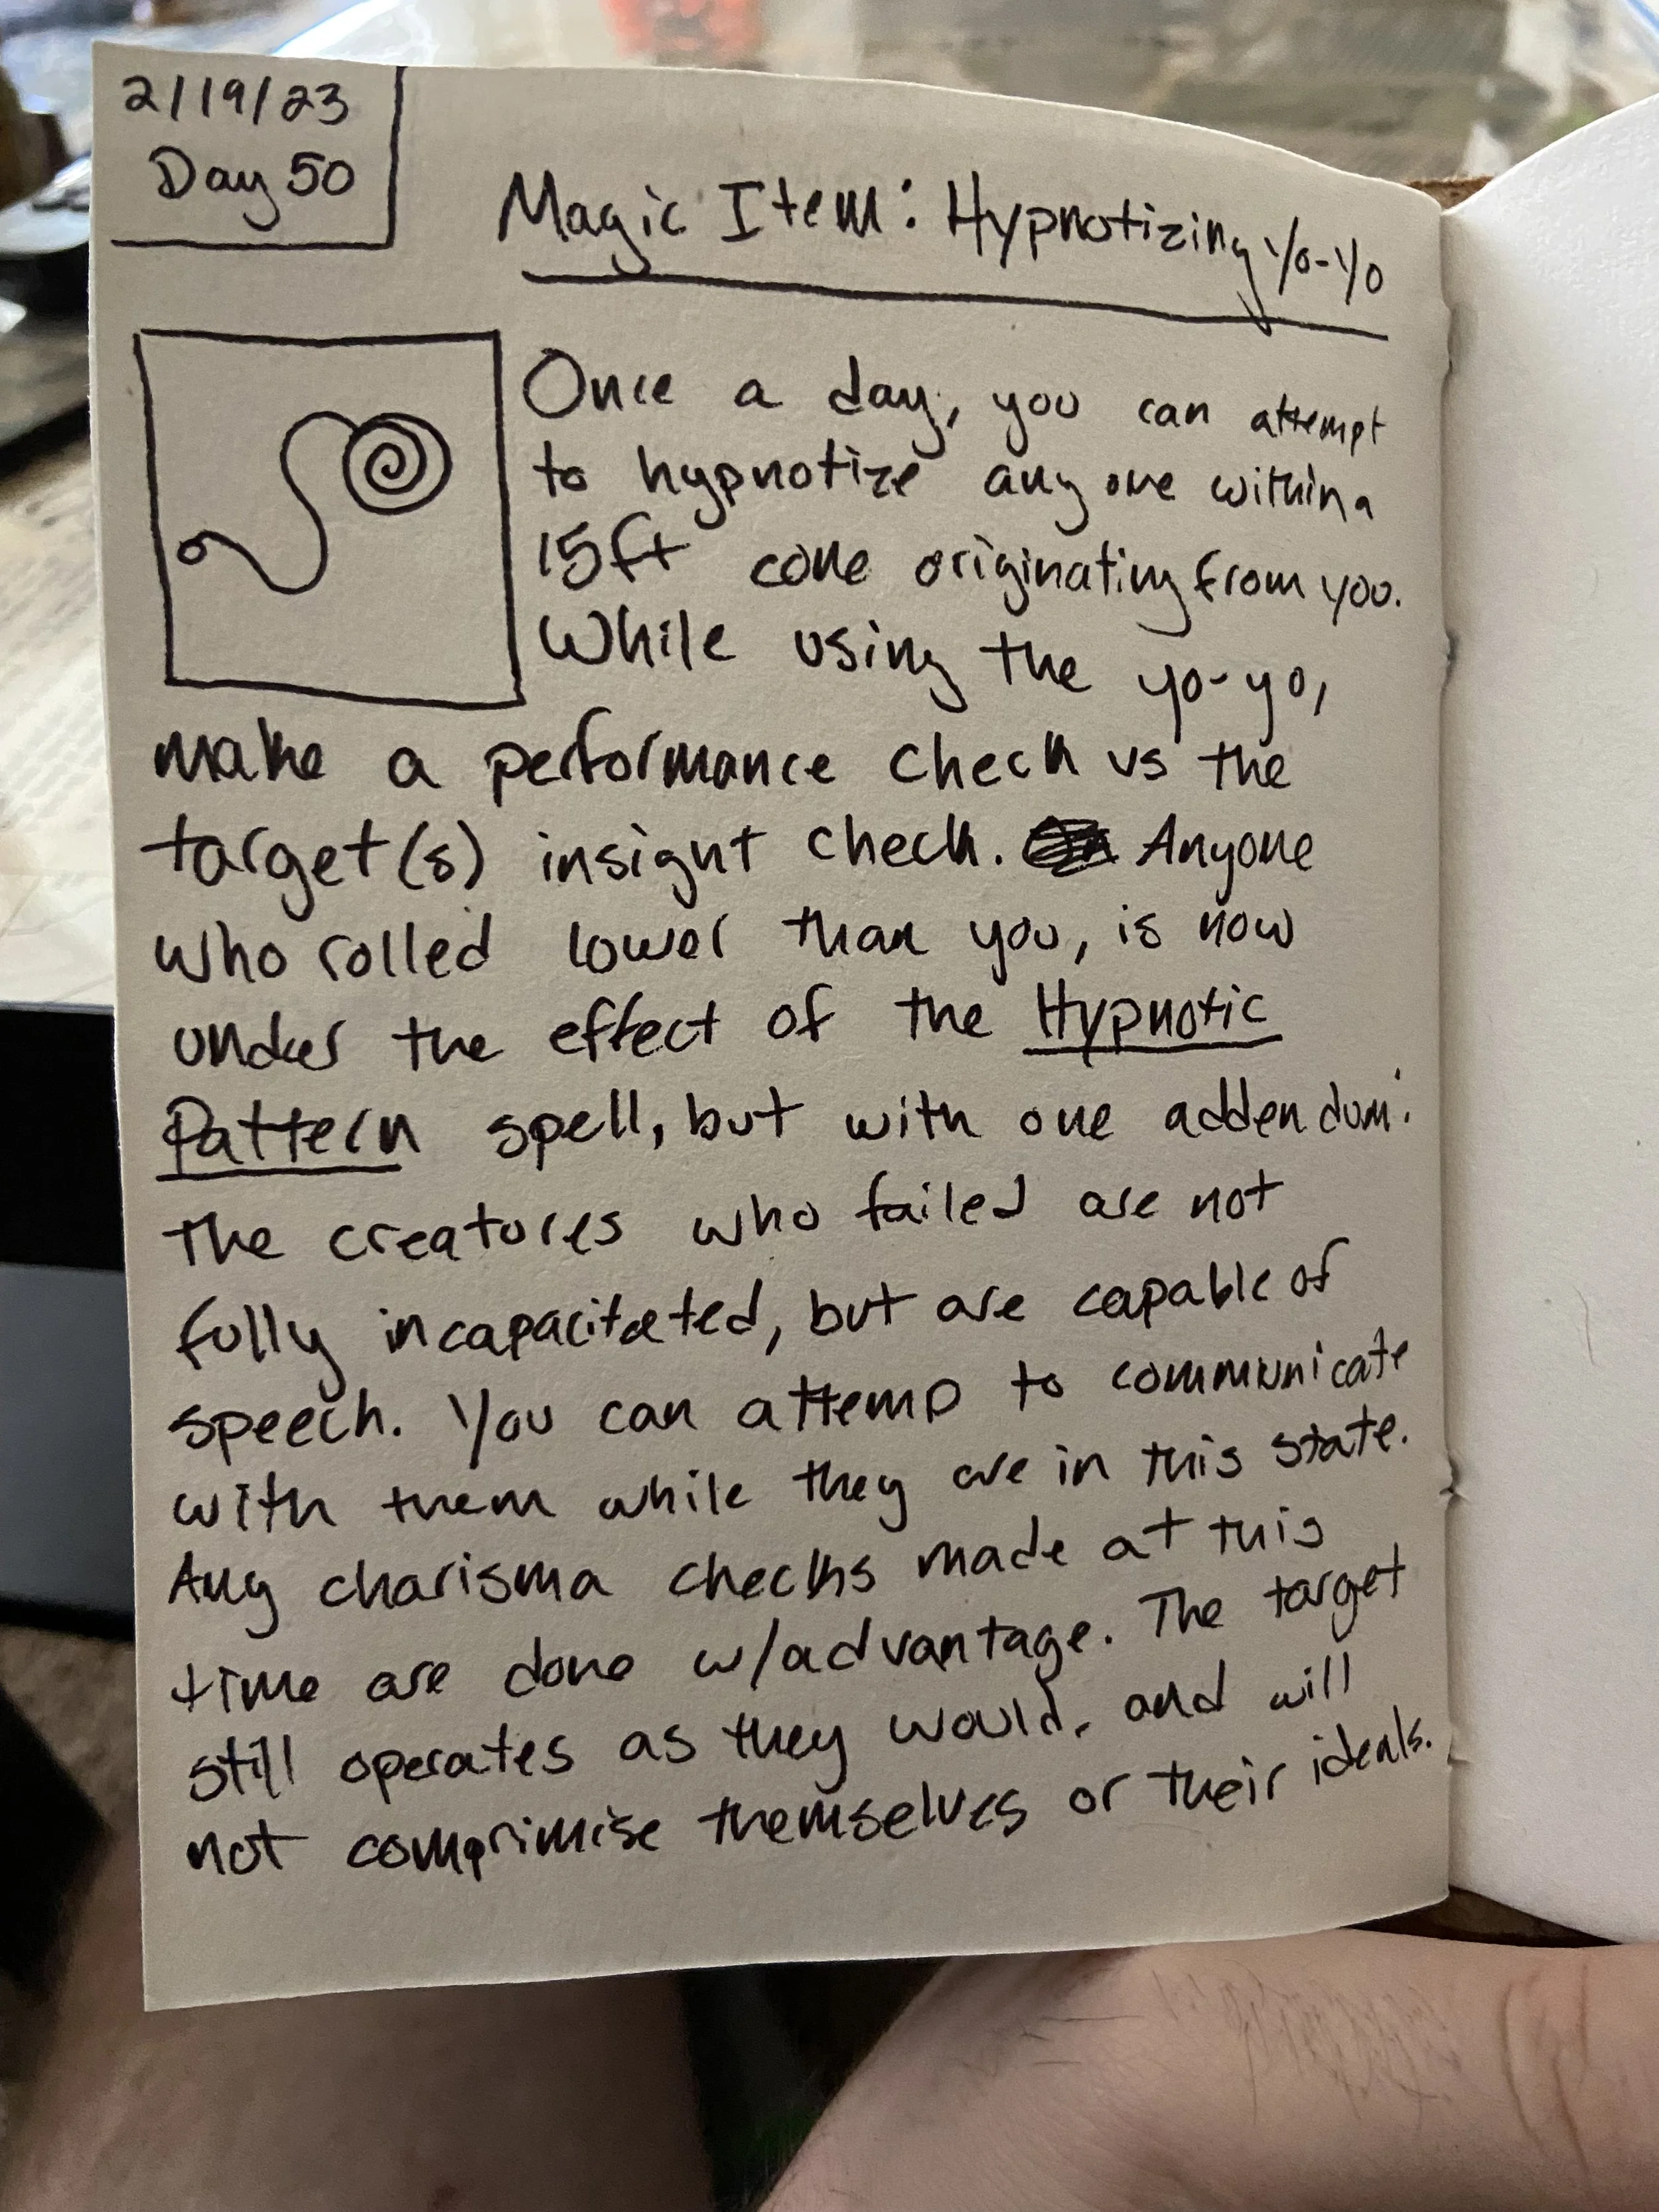 2/19/23
Day 50
Magic Item: Hypnotizing Yo-Yo
Once a day, you can attempt
to hypnotize anyone within a
15ft cone originating from you.
While using the yo-yo,
make a performance check vs the
target(s) insight check. Anyone
who rolled lower than you, is now
under the effect of the Hypnotic
Pattern spell, but with one addendum:
The creatures who failed are not
fully incapacitated, but are capable of
speech. You can attemp to communicate
with them while they are in this state.
Any charisma checks made at this
time are done w/advantage. The target
still operates as they would, and will
not comprimise themselves or their ideals.